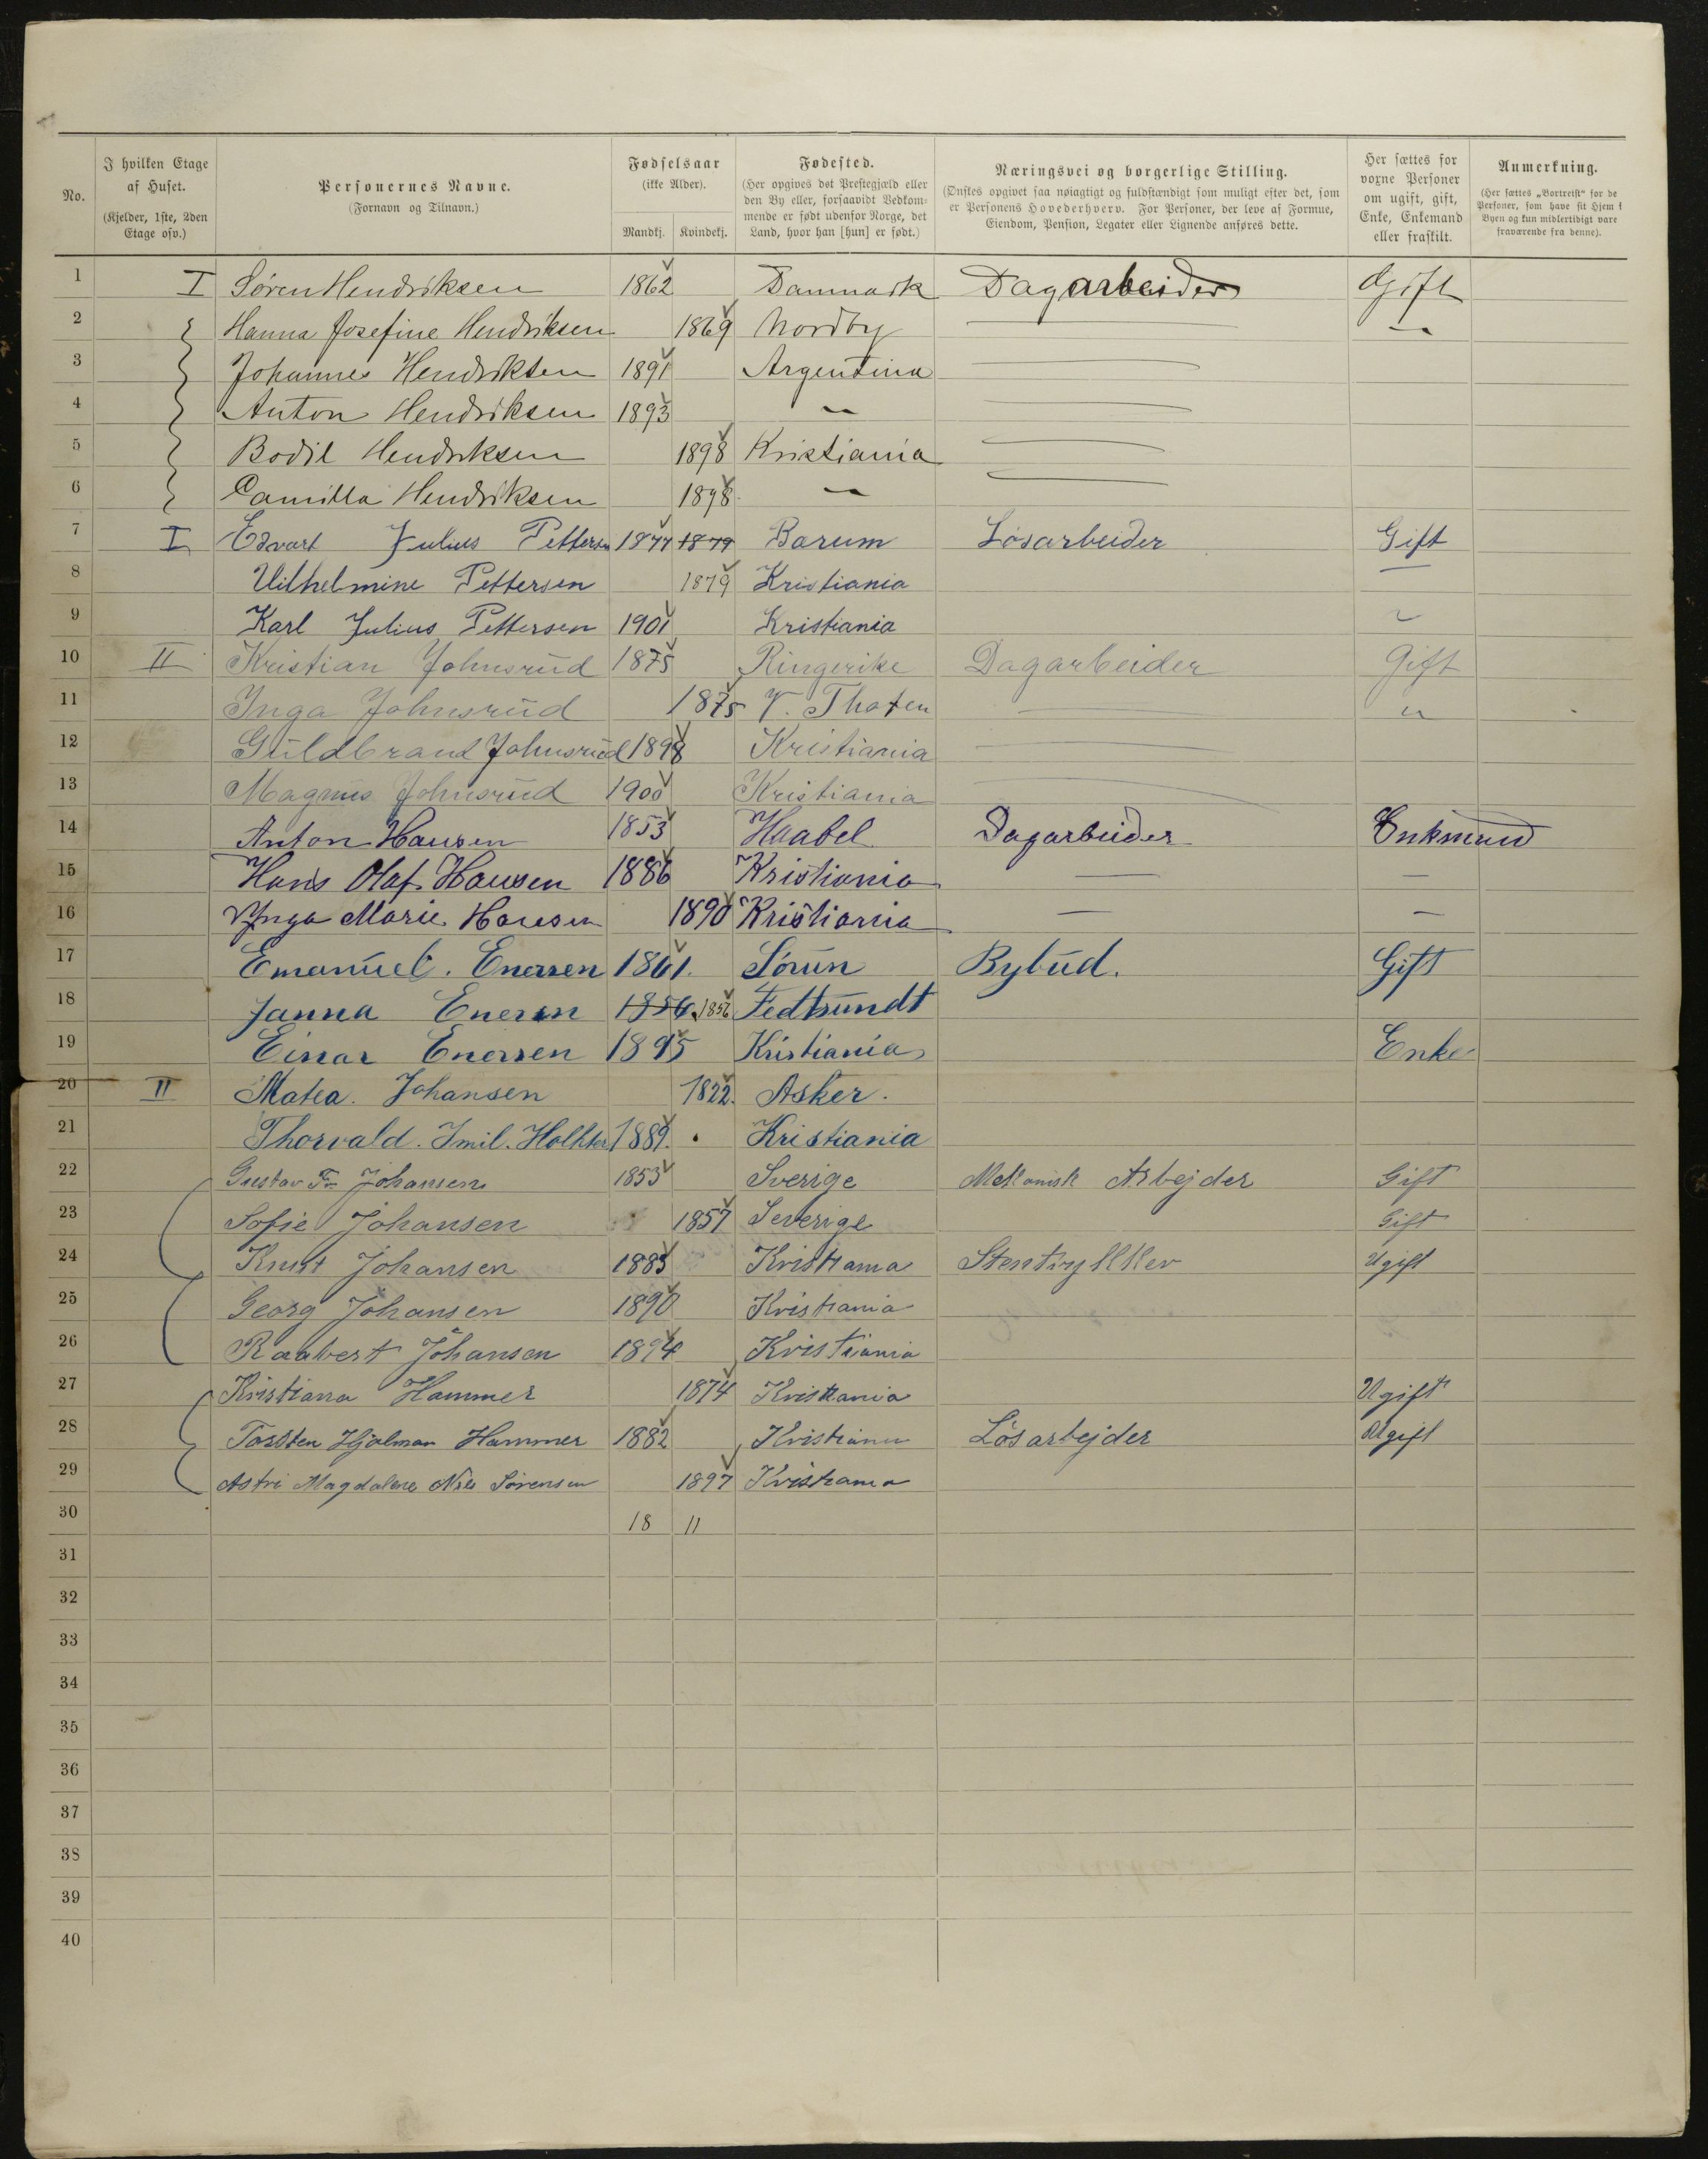 No. I hvilken Etage af Huset. (Kjelder, 1ste, 2den Etage osv.) Personernes Navne. (Fornavn og Tilnavn.) Fødselsaar (ikke Alder). Mandkj. Kvindekj. Fødested. (Her opgives det Prestegjæld eller den By eller, forsaavidt Vedkommende er født udenfor Norge, det Land, hvor han [hun] er født.) Næringsvei og borgerlige Stilling. (Ønskes opgivet saa nøiagtigt og fuldstændigt som muligt efter det, som er Personens Hovederhverv. For Personer, der leve af Formue, Eiendom, Pension, Legater eller Lignende anføres dette. Her sættes for voxne Personer om ugift, gift, Enke, Enkemand eller fraskilt. Anmerkning. (Her sættes „Bortreist“ for de Personer, som have sit Hjem i Byen og kun midlertidigt vare fraværende fra denne).
1 I Søren Hendriksen 1862 Danmark Dagarbeider Gift
2 Hanna Josefine Hendriksen 1869 Nordby — "
3 Johannes Hendriksen 1891 Argentina —
4 Anton Hendriksen 1893 " —
5 Bodil Hendriksen 1898 Kristiania —
6 Camilla Hendriksen 1898 " —
7 I Edvart Julius Pettersen 1877 1879 Barum Løsarbeider Gift
8 Vilhelmine Pettersen 1879 Kristiania —
9 Karl Julius Pettersen 1901 Kristiania "
10 II Kristian Johnsrud 1875 Ringerike Dagarbeider Gift
11 Inga Johnsrud 1875 V. Thoten — "
12 Guldbrand Johnsrud 1898 Kristiania —
13 Magnus Johnsrud 1900 Kristiania —
14 Anton Hansen 1853 Haabel Dagarbeider Enkmand
15 Hans Olaf Hansen 1886 Kristiania — —
16 Ynga Marie Hansen 1890 Kristiania — —
17 Emanuel. Enersen 1861. Sörun Bybud. Gift
18 Janna Enersen 1856 1856 Fedtsundt
19 Einar Enersen 1895 Kristiania Enke
20 II Matea. Johansen 1822. Asker.
21 Thorvald. Emil. Holhter 1889. Kristiania
22 Gustav Fr Johansen 1853 Sverige Mekanisk Arbejder Gift
23 Sofie Johansen 1857 Severige Gift
24 Knut Johansen 1883 Kristiania Stentrykker Ugift
25 Georg Johansen 1890 Kristiania
26 Raabert Johansen 1894 Kristiania
27 Kristiana Hammer 1874 Kristiania Ugift
28 Torsten Hjalmar Hammer 1882 Kristiania Løsarbejder Ugift
29 Astri Magdalene Nils Sørensen 1897 Kristiania
30 18 11
31
32
33
34
35
36
37
38
39
40